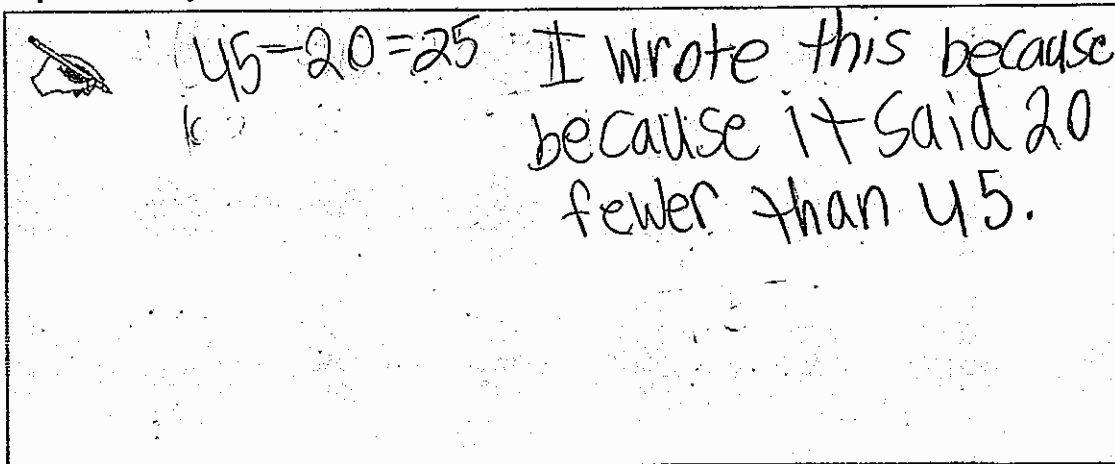 45-20=25 I wrote this because
because it said 20
fewer than 45.